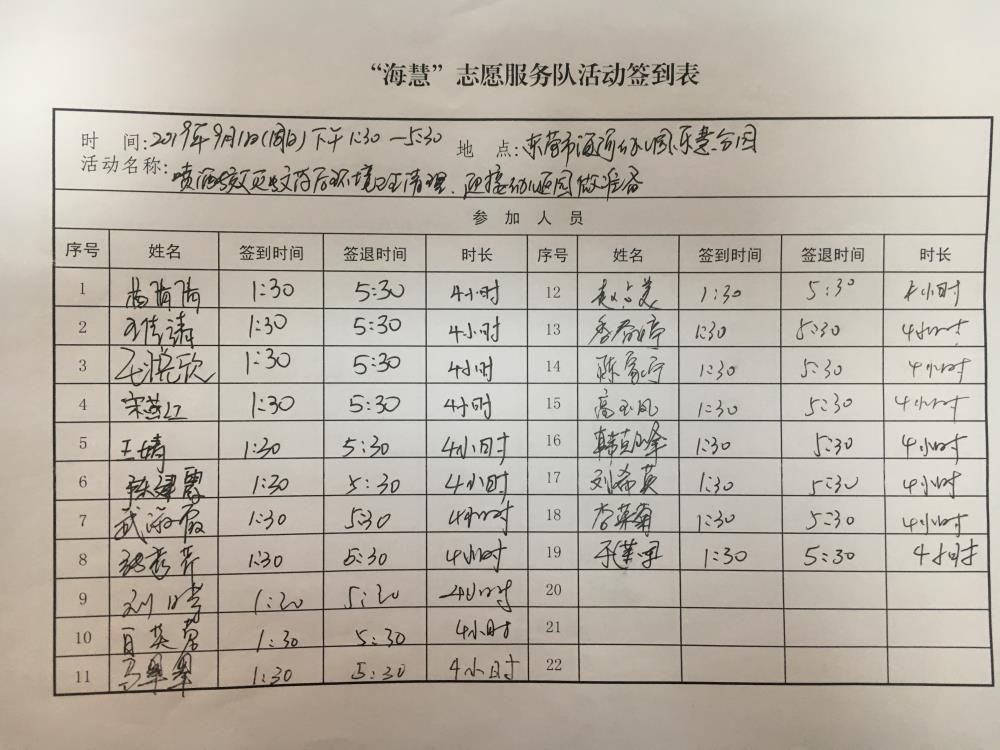 “海慧”志愿服务队活动签到表
时 间：2019年9月1日(周日)下午1:30—5:30 地 点：东营市海河幼儿园乐慧分园
活动名称：喷洒 灭蚊 环境卫生清理、迎接幼儿返园做准备
参 加 人 员
序号 姓名 签到时间 签退时间 时长 序号 姓名 签到时间 签退时间 时长
1 1:30 5:30 4小时 12 1:30 5:30 4小时
2 1:30 5:30 4小时 13 1:30 5:30 4小时
3 1:30 5:30 4小时 14 陈家宁 1:30 5:30 4小时
4 宋燕江 1:30 5:30 4小时 15 高玉凤 1:30 5:30 4小时
5 王婧 1:30 5:30 4小时 16 1:30 5:30 4小时
6 1:30 5:30 4小时 17 刘希英 1:30 5:30 4小时
7 武海霞 1:30 5:30 4小时 18 李英菊 1:30 5:30 4小时
8 1:30 5:30 4小时 19 1:30 5:30 4小时
9 刘晴 1:30 5:30 4小时 20
10 1:30 5:30 4小时 21
11 马翠翠 1:30 5:30 4小时 22